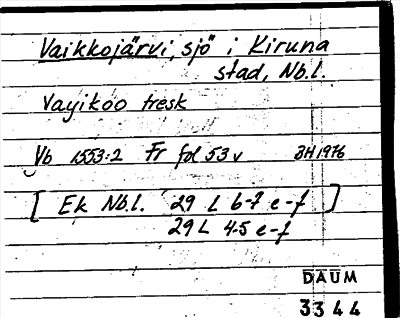 Vaikkojärvi, sjö i Kiruna
stad, Nb.l.
Vayikoo tresk
Vb 1553:2 Fr fol 53v BH 1976
[ Ek Nb.l. 29 L 6-7 e-f ]
29 L 4-5 e-f
DAUM
3344